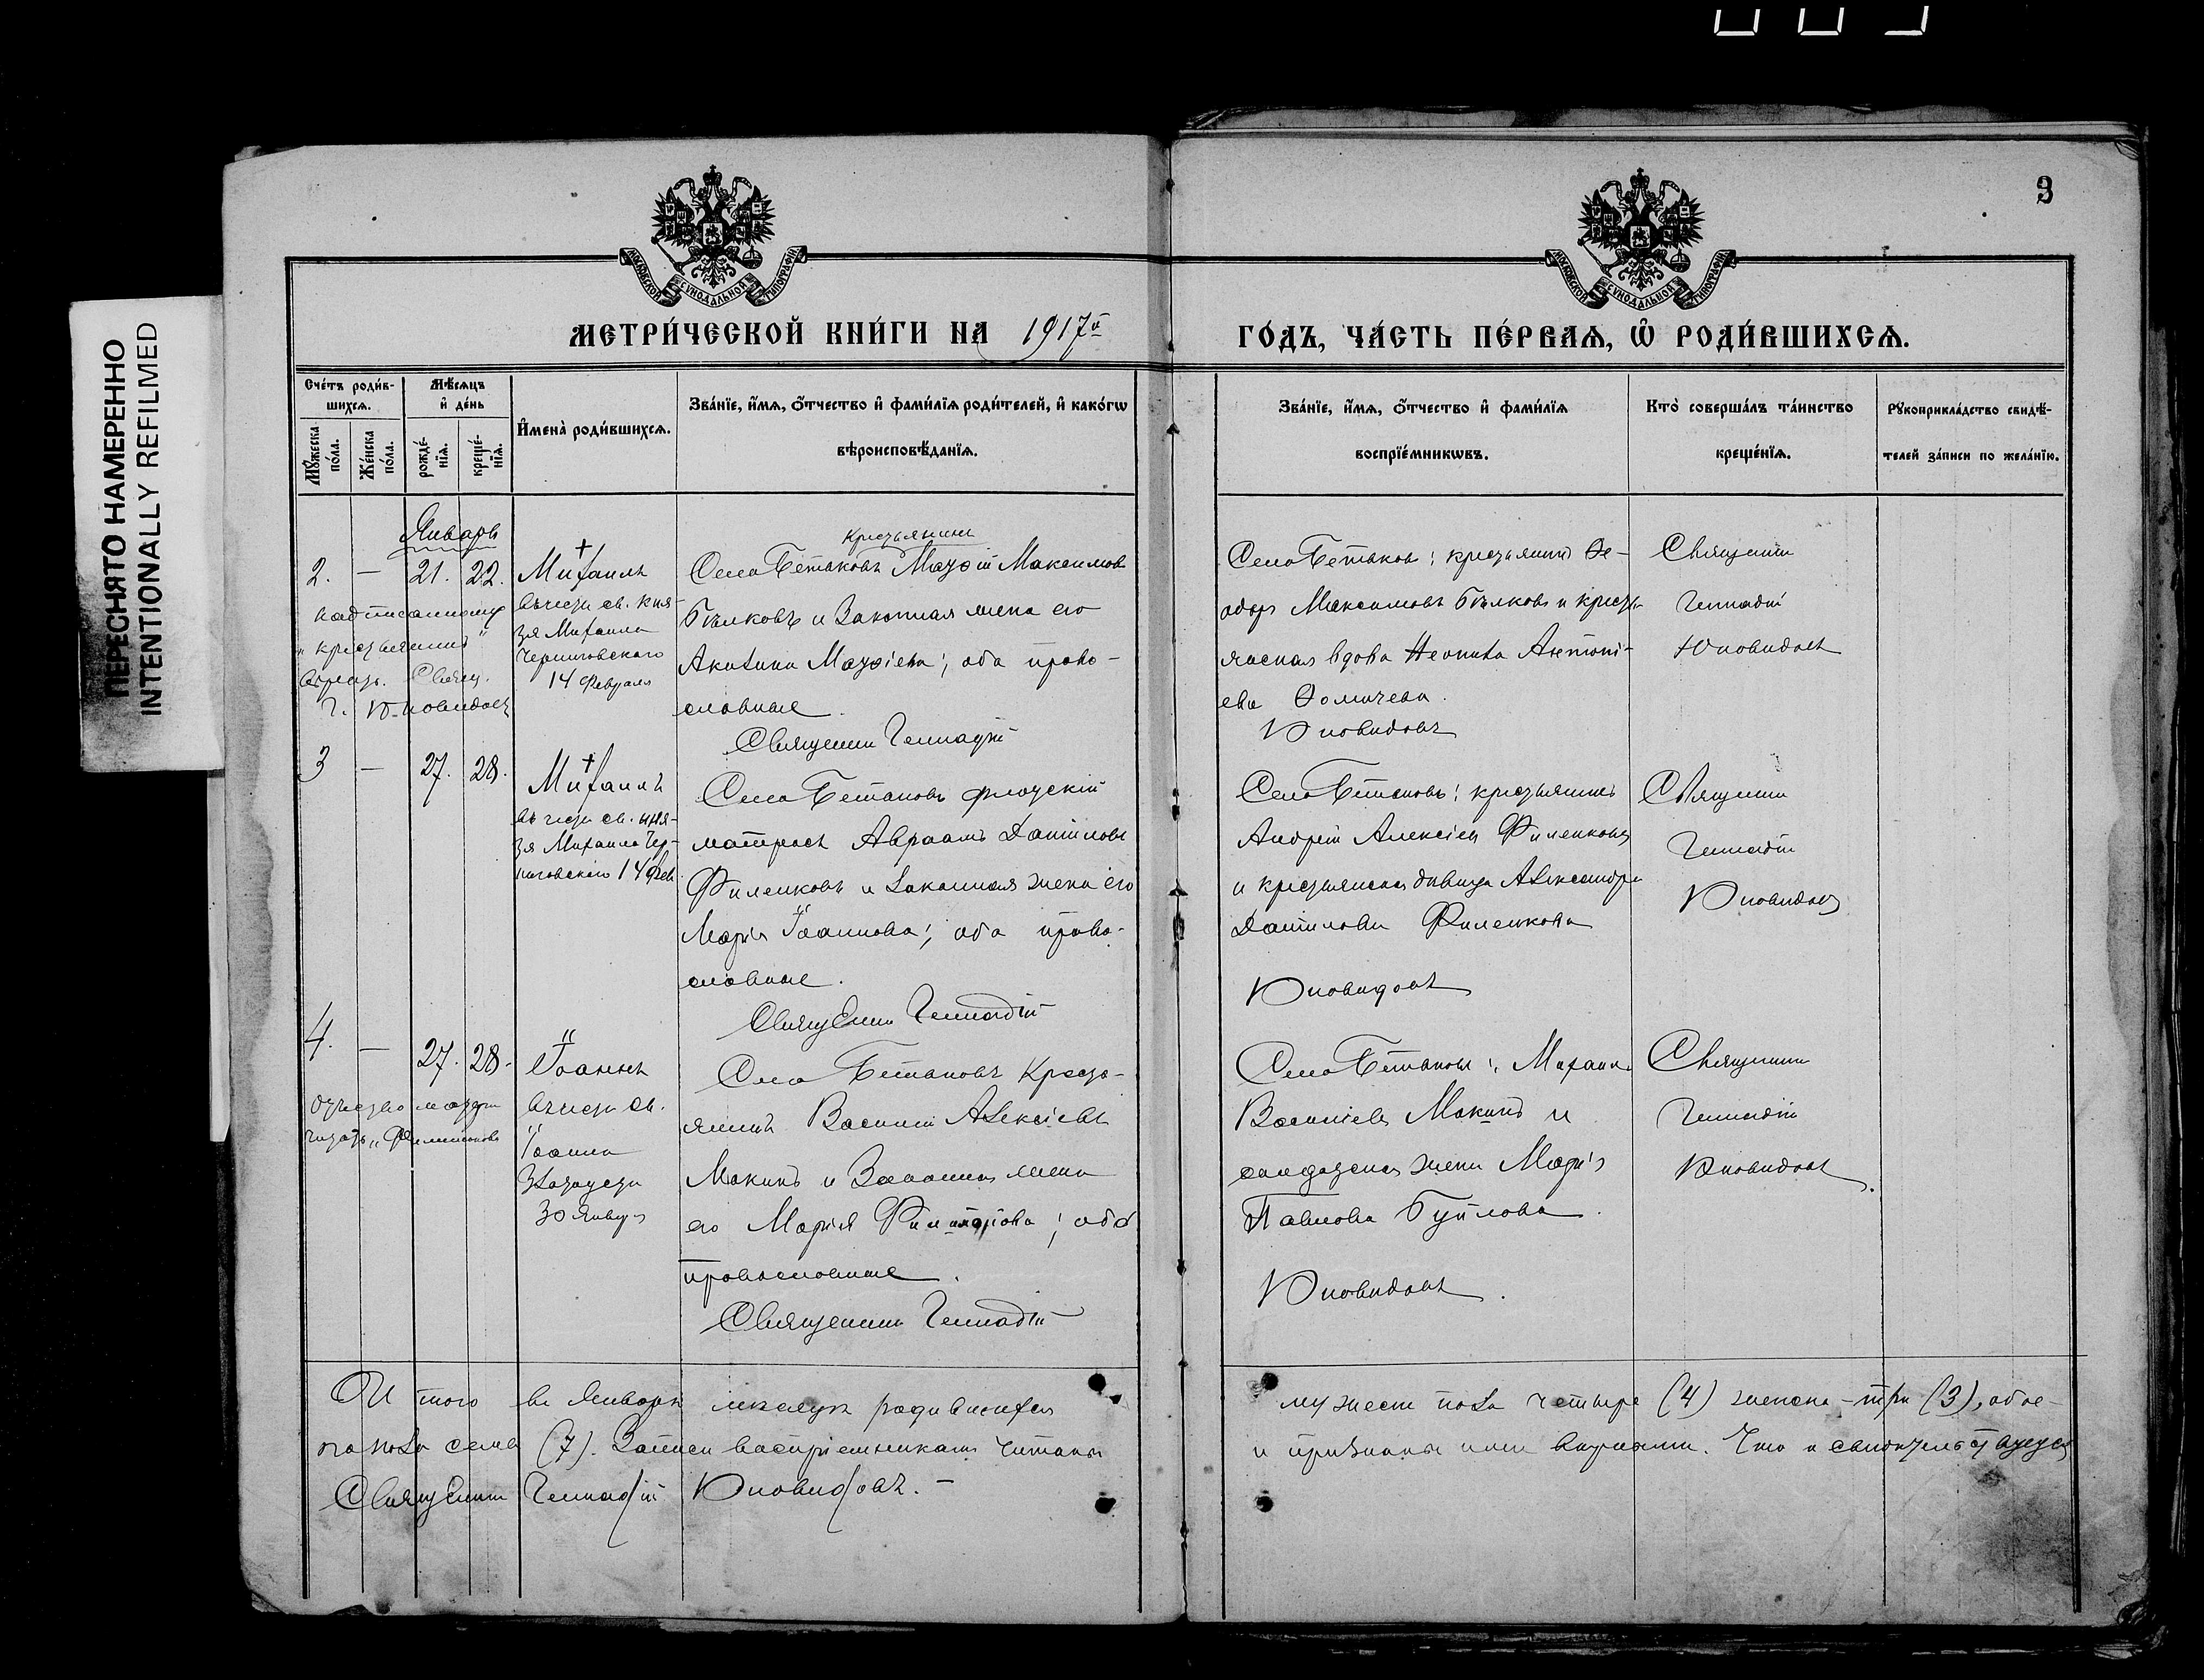 ПЕРЕСНЯТО НАМЕРЕННО
INTENTIONALLY REFILMED
3
МОСКОВСКОЙ СУНОДАЛЬНОЙ ТИПОГРАФІИ
МОСКОВСКОЙ СУНОДАЛЬНОЙ ТИПОГРАФІИ
МЕТРИ́ЧЕСКОЙ КНИ́ГИ НА 1917й
ГО́ДЪ, ЧА́СТЬ ПЕ́РВАѦ, Ѡ҆ РОДИ́ВШИХСѦ.
Сче́тъ роди́в-
шихсѧ.
Мꙋ́жеска по́ла.
Же́нска по́ла.
Мѣ́сѧцъ
и҆ де́нь
рожде́-
нїѧ.
креще́-
нїѧ.
И҆мена̀ роди́вшихсѧ.
Зва́нїе, и҆́мѧ, ѻ҆́тчество и҆ фами́лїѧ роди́телей, и҆ како́гѡ
вѣроисповѣ́данїѧ.
Зва́нїе, и҆́мѧ, ѻ҆́тчество и҆ фами́лїѧ
воспрїе́мникѡвъ.
Кто̀ соверша́лъ та́инство
креще́нїѧ.
Рꙋкоприкла́дство свидѣ́-
телей за́писи по жела́нїю.
Январь
2. — 21. 22.
надписанному
„крестьянинъ"
вѣрить. Свящ.
Г. Юновидовъ
Михаилъ
въ честь св. кня-
зя Михаила
Черниговскаго
14 Февраля
крестьянинъ
Село Бетьковъ Максимовъ
Бѣлковъ и законная жена его
Акилина; оба право-
славные.
Священникъ Геннадій
Село Бетьковъ: крестьянинъ Ѳе-
одоръ Максимовъ Бѣлковъ и кресть-
янская вдова Антоні-
ева Ѳомичева.
Юновидовъ
Священникъ
Геннадій
Юновидовъ
3 — 27. 28.
Михаилъ
въ честь св. кня-
зя Михаила Чер-
ниговскаго 14 Фев.
Село Бетьковъ флотскій
матросъ Авраамъ Даніиловъ
Филенковъ и законная жена его
Марія Іоаннова; оба право-
славные.
Священникъ Геннадій
Село Бетьковъ: крестьянинъ
Андрей Алексіевъ Филенковъ
и крестьянская дѣвица Александра
Даніилова Филенкова
Юновидовъ
Священникъ
Геннадій
Юновидовъ
4. — 27. 28.
отчество матери
читать „
Іоаннъ
въ честь св.
Іоанна
Златоуста
30 Января
Село Бетьковъ Кресть-
янинъ Василій Алексіевъ
Макинъ и Законная жена
его Марія; оба
православные.
Священникъ Геннадій
Село Бетьковъ: Михаилъ
Васильевъ Макинъ и
солдатская жена Марія
Павлова.
Юновидовъ.
Священникъ
Геннадій
Юновидовъ.
Итого въ Январѣ мѣсяцѣ родившихся мужеск. пола четыре (4) женска - три (3), обое-
го пола семь (7). Записи воспріемникамъ читаны и признаны ими вѣрными. Что и свидѣтельствуется
Священникъ Геннадій Юновидовъ. —